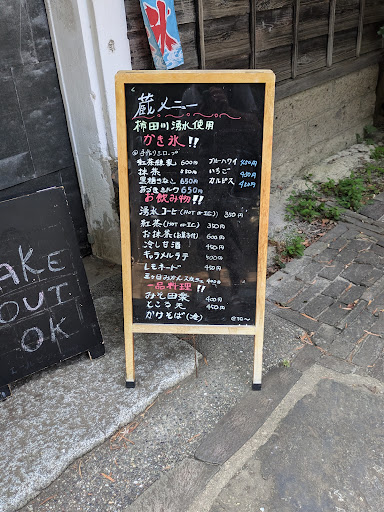 氷
蔵メニュー
柿田川湧水使用
かき氷!!
@手作りシロップ
紅茶練乳 600円 ブルーハワイ 450円
抹茶 550円 いちご 450円
黒糖きなこ 650円 カルピス 450円
あずきミルク 650円
お飲み物!!
湧水コーヒー(HOT or ICE) 350円
紅茶(HOT or ICE) 350円
お抹茶(お菓子付) 600円
冷し甘酒 450円
キャラメルラテ 500円
レモネード 450円
三ヶ日みかんスカッシュ
一品料理!
みそ田楽 400円
ところ天 450円
かけそば(冷)
TAKE
OUT
OK